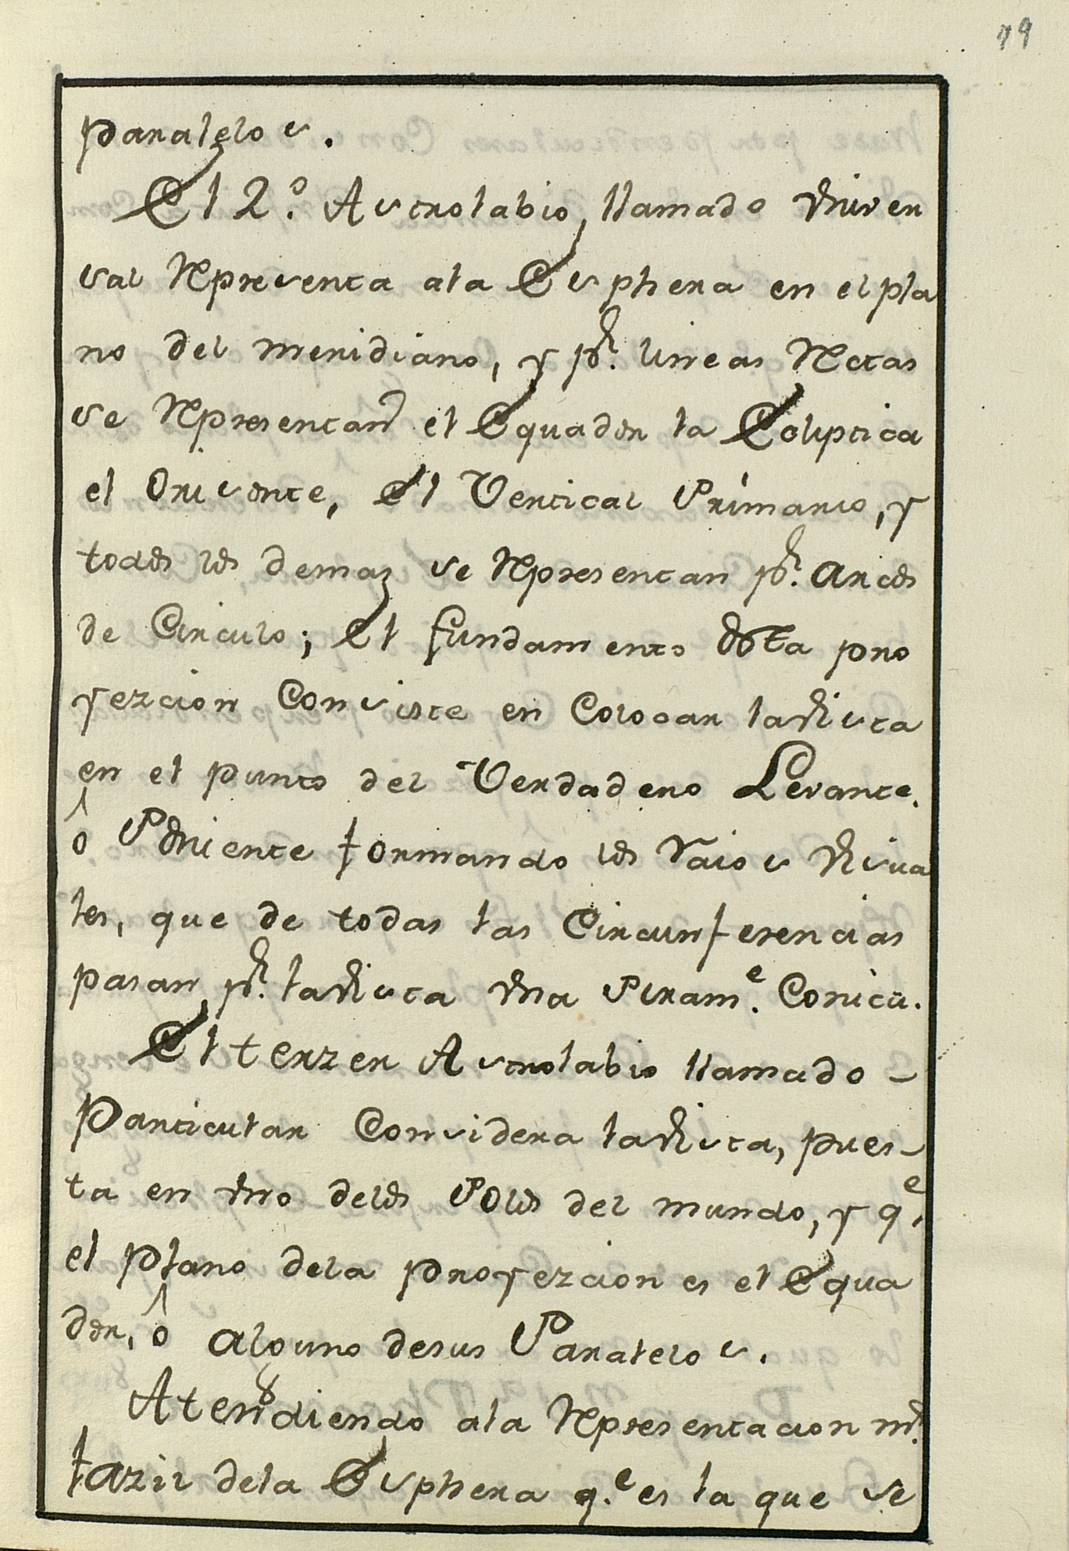 79
paralelos.
El 2.º Astrolabio, llamado Univer
sal Representa ala Esphera en el pla
no del meridiano, y pr. lineas Rectas
se Representan el Equador la Ecliptica
el Orisonte, el Vertical Primario, y
todos los demaz se Representan pr. arcos
de Circulo; el fundamento desta pro
yezcion Consiste en Colocar la Vista
en el punto del Verdadero Levante,
ô Poniente formando los Raios Visua
les, que de todas las Circunferencias
pasan pr. la Vista una Piram.e Conica.
El terzer Astrolabio llamado -
Particular Considera la Vista, pues-
ta en uno delos Polos del mundo, y q.e
el plano dela proyezcion es el Equa
dor, ô alguno desus Paralelos.
Atendiendo ala Representacion m.s
fazil dela Esphera q.e es la que se